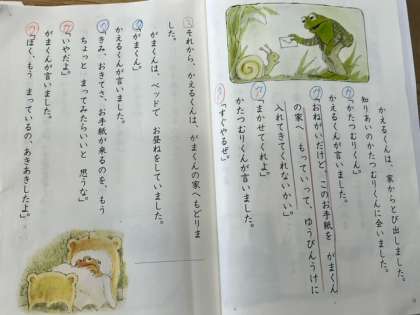 かえるくんは、家からとび出しました。
知りあいのかたつむりくんに会いました。
「かたつむりくん。」
かえるくんが言いました。
「おねがいだけど、このお手紙を がまくん
の家へ もっていって、ゆうびんうけに
入れてきてくれないかい。」
「まかせてくれよ。」
かたつむりくんが言いました。
「すぐやるぜ。」
それから、かえるくんは、がまくんの家へもどりま
した。
がまくんは、ベッドで お昼ねをしていました。
「がまくん。」
かえるくんが言いました。
「きみ、おきてさ、お手紙が来るのを、もう
ちょっと まってみたらいいと 思うな。」
「いやだよ。」
がまくんが言いました。
「ぼく、もう まっているの、あきあきしたよ。」